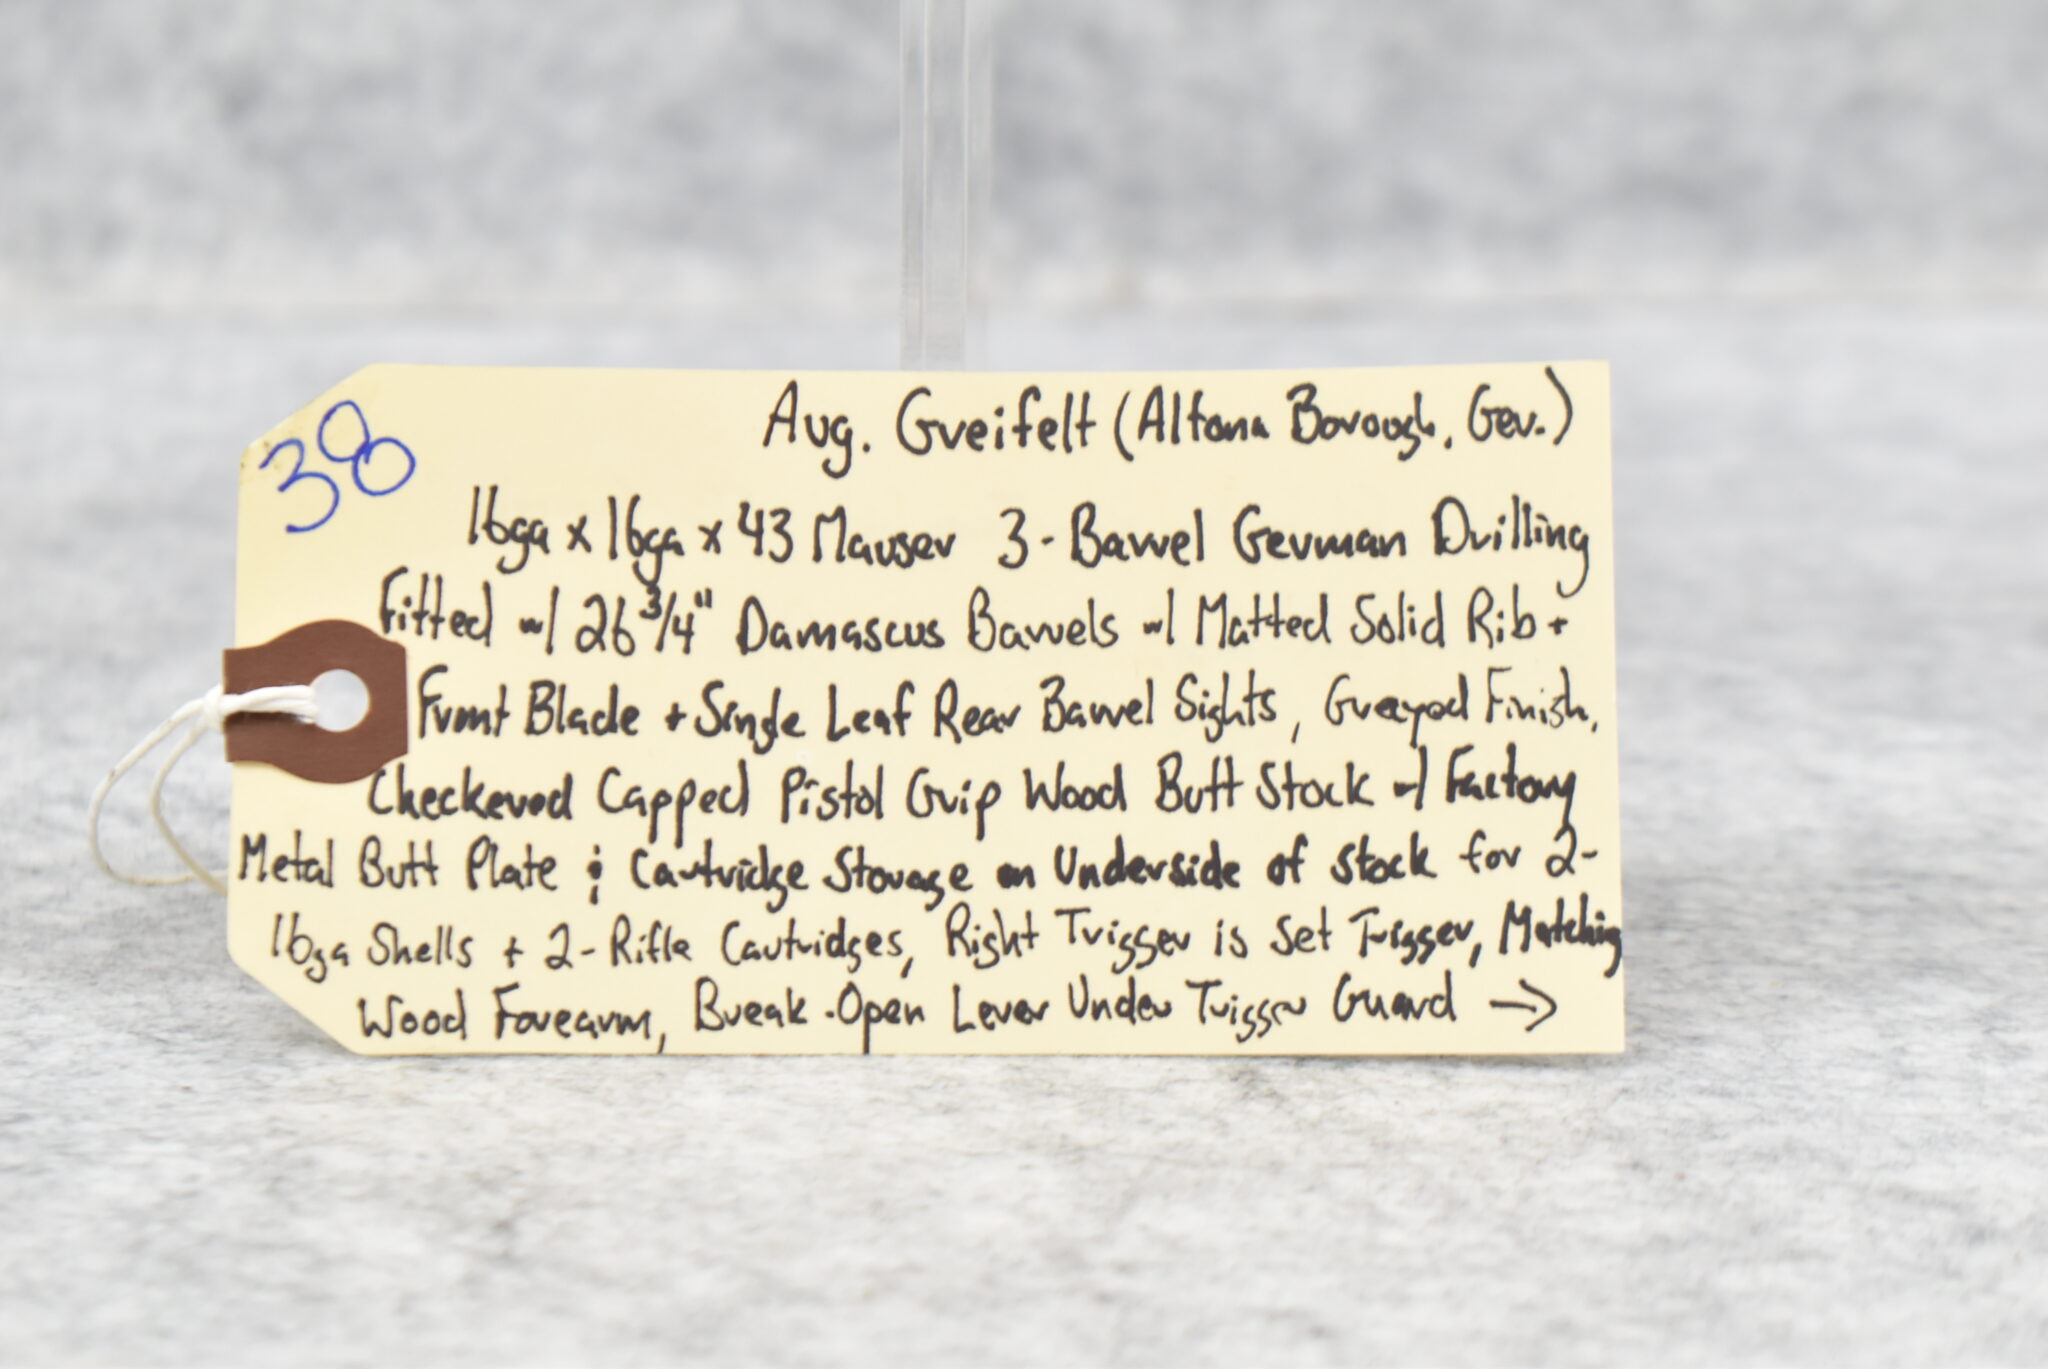 38
Aug. Greifelt (Altona Borough, Ger.)
16ga x 16ga x 43 Mauser 3-Barrel German Drilling
Fitted w/ 26 3/4" Damascus Barrels w/ Matted Solid Rib +
Front Blade + Single Leaf Rear Barrel Sights, Greyed Finish,
Checkered Capped Pistol Grip Wood Butt Stock w/ Factory
Metal Butt Plate & Cartridge Storage on Underside of Stock for 2-
16ga Shells + 2-Rifle Cartridges, Right Trigger is Set Trigger, Matching
Wood Forearm, Break-Open Lever Under Trigger Guard →